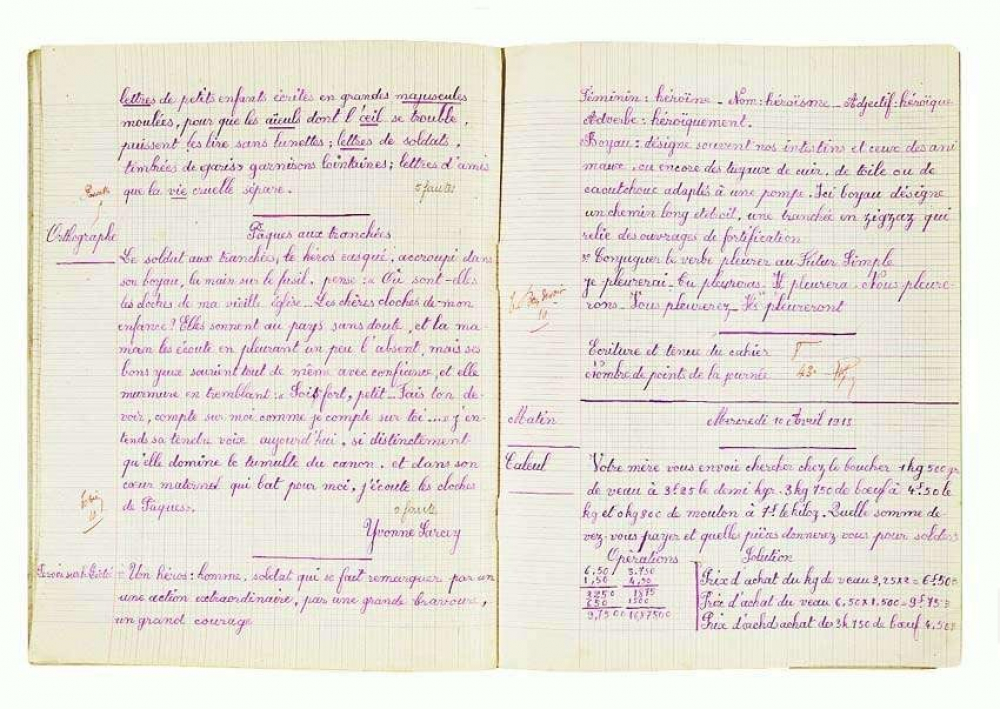 lettres de petits enfants écrites en grandes majuscules
moulées, pour que les aïeuls dont l'œil se trouble,
puissent les lire sans lunettes ; lettres de soldats,
timbrées de garnisons lointaines ; lettres d'amis
que la vie cruelle sépare.
2 fautes
Orthographe
Pâques aux tranchées
Le soldat aux tranchées, le héros casqué, accroupi dans
son boyau, la main sur le fusil, pense : « Où sont-elles
les cloches de ma vieille Église. Les chères cloches de mon
enfance ? Elles sonnent au pays sans doute, et la ma-
man les écoute en pleurant un peu l'absent, mais ses
bons yeux sourient tout de même avec confiance, et elle
murmure en tremblant : « Sois fort, petit _ Fais ton de-
voir, compte sur moi comme je compte sur toi ... » j'en-
tends sa tendre voix aujourd'hui, si distinctement
qu'elle domine le tumulte du canon, et dans son
cœur maternel qui bat pour moi, j'écoute les cloches
de Pâques».
2 fautes
Yvonne Sarcey
= Un héros : homme, soldat qui se fait remarquer par un
une action extraordinaire, par une grande bravoure,
un grand courage
Féminin : héroïne _ Nom : héroïsme _ Adjectif : héroïque
Adverbe : héroïquement.
Boyau : désigne souvent nos intestins et ceux des ani
maux, ou encore des tuyaux de cuir, de toile ou de
caoutchouc adaptés à une pompe. Ici boyau désigne
un chemin long étroit, une tranchée en zigzag qui
relie des ouvrages de fortification
Conjuguer le verbe pleurer au Futur Simple
je pleurerai. tu pleureras. Il pleurera. Nous pleure-
rons _ Vous pleurerez _ Ils pleureront
Ecriture et tenue du cahier
Nombre de points de la journée 43
Matin
Mercredi 10 Avril 1918
Calcul
Votre mère vous envoie chercher chez le boucher 1 kg 500 gr
de veau à 3f25 le demi kgr. 3 kg 750 de bœuf à 4f50 le
kg et 0 kg 800 de mouton à 7f le kilog. Quelle somme de-
vez-vous payer et quelles pièces donnerez-vous pour solder
Opérations
Solution
6,50 3.750
1,50 4,50
3250 1875
650 1500
9,7500 1687500
Prix d'achat du kg de veau 3,25x2 = 6f50
Prix d'achat du veau 6,50 x 1,500 = 9f75
Prix d'achd achat de 3k 750 de bœuf 4.50